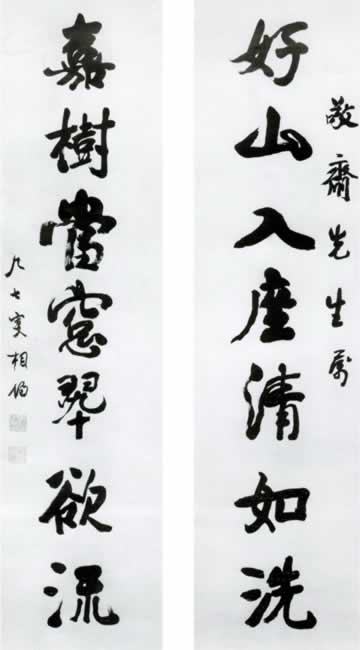 敬齋先生属
好山入座清如洗
嘉樹當窓翠欲流
九七叟相伯